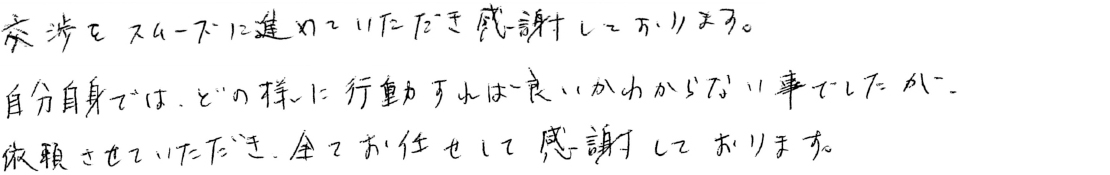 交渉をスムーズに進めていただき感謝しております。
自分自身では、どの様に行動すれば良いかわからない事でしたが、
依頼させていただき、全てお任せして感謝しております。